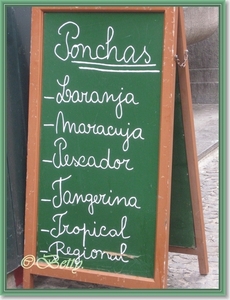 Ponchas
- Laranja
- Maracuja
- Pescador
- Tangerina
- Tropical
- Regional
© Betty